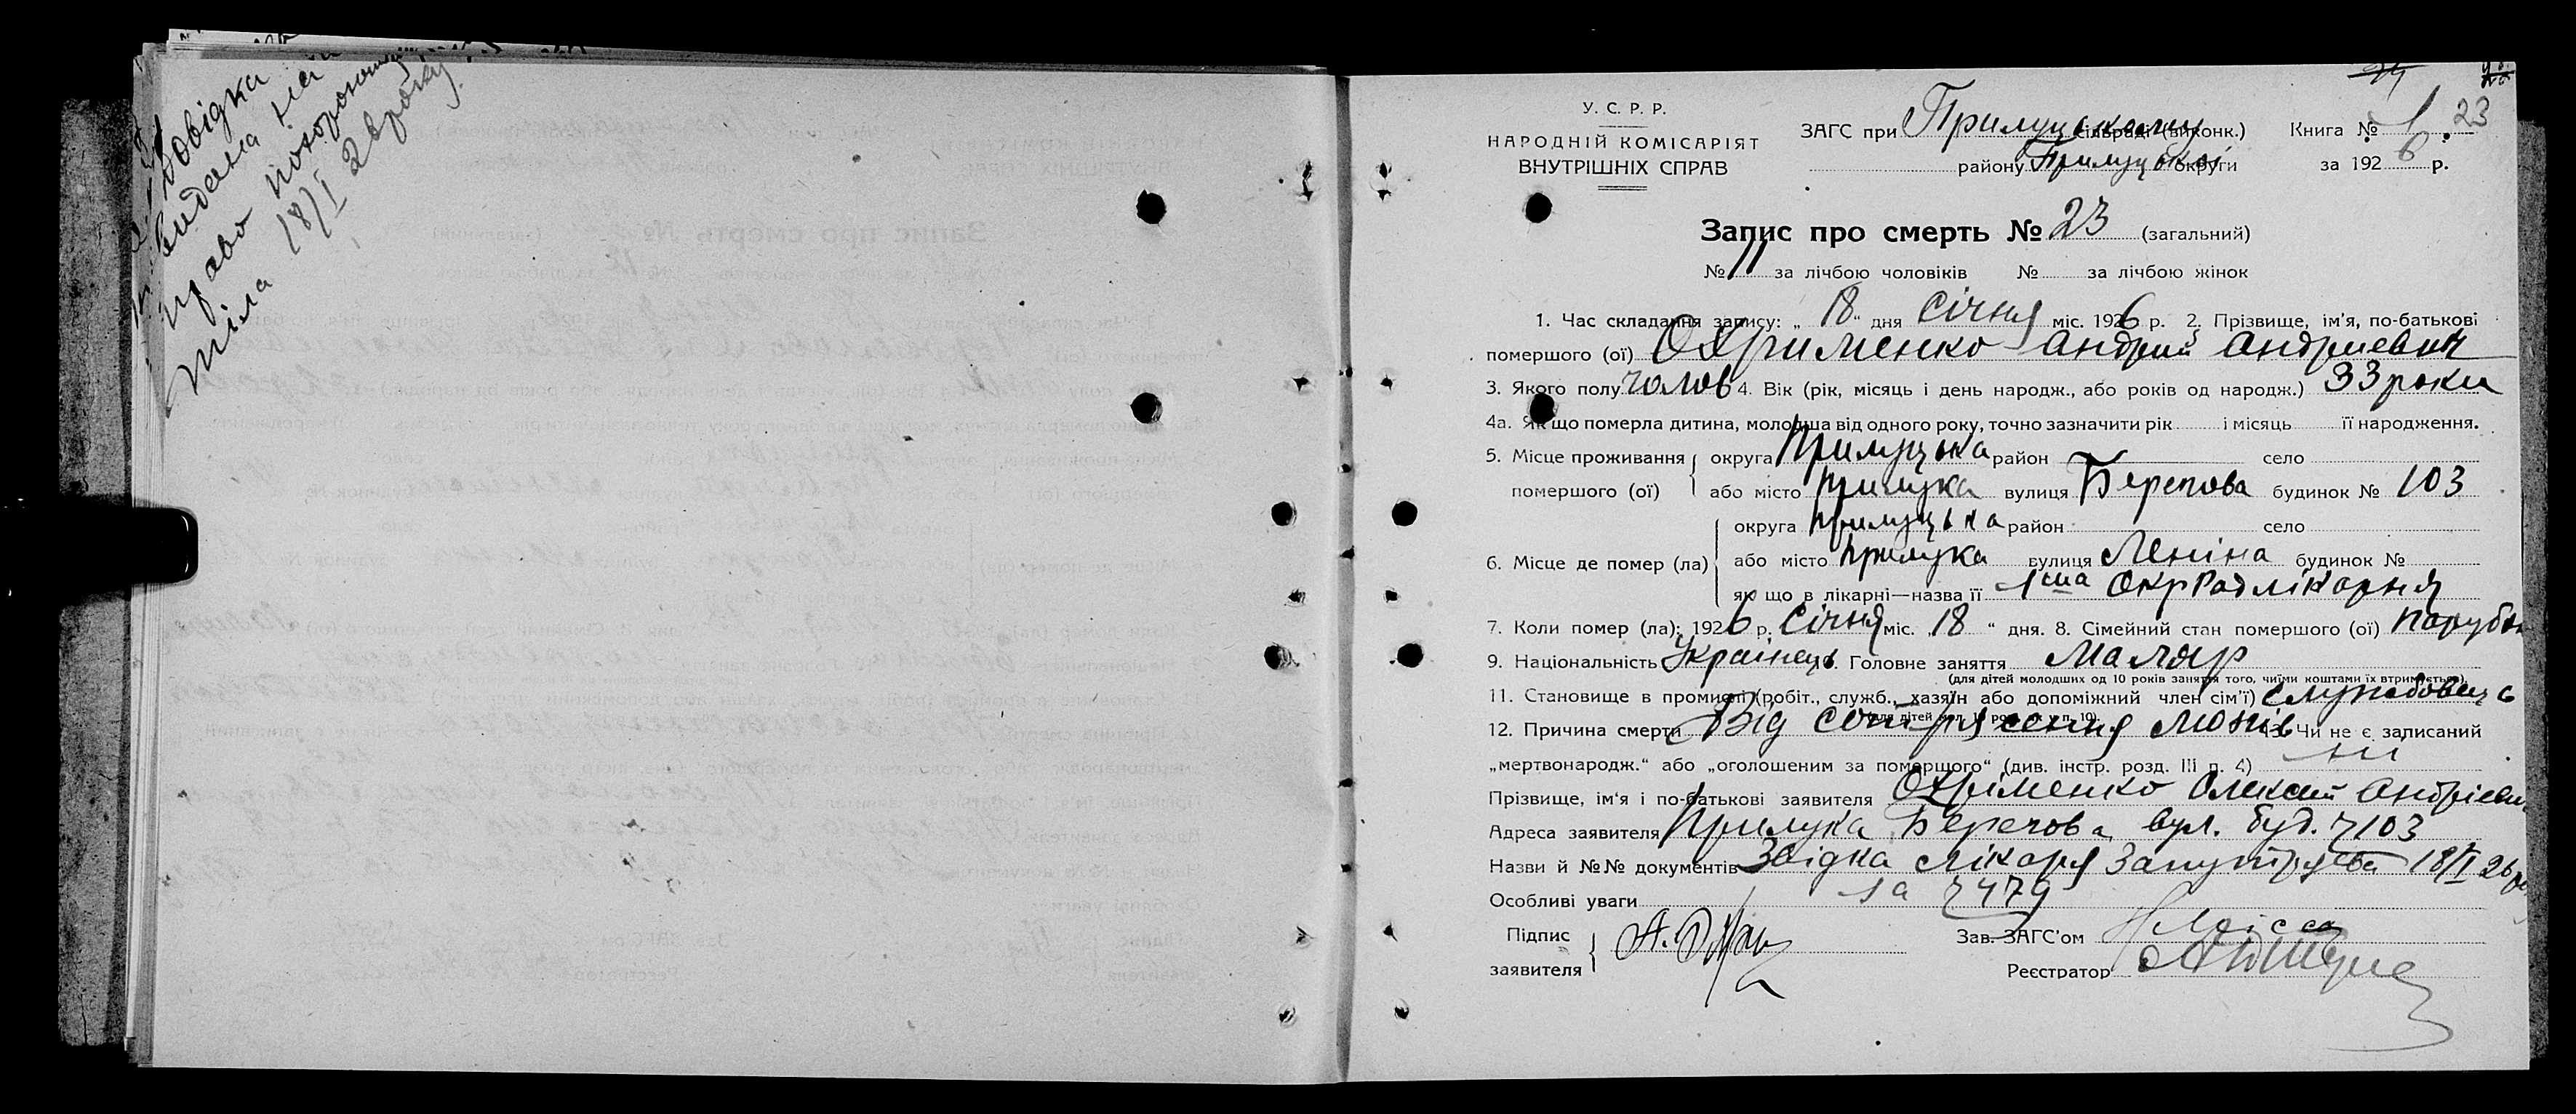 довідка
видана на
право похорону
тіла 18/I 26 року.
У. С. Р. Р.
НАРОДНІЙ КОМІСАРІЯТ
ВНУТРІШНІХ СПРАВ
ЗАГС при Прилуцькому сільраді (виконк.) Книга № 1
23
району Прилуцької округи за 1926 р.
Запис про смерть № 23 (загальний)
№ 11 за лічбою чоловіків № за лічбою жінок
1. Час складання запису: „ 18 “ дня Січня міс. 1926 р. 2. Прізвище, ім’я, по-батькові
помершого (ої) Охрименко Андрий Андриевич
3. Якого полу чолов 4. Вік (рік, місяць і день народж., або років од народж.) 33 роки
4а. Як що померла дитина, молодша від одного року, точно зазначити рік і місяць її народження.
5. Місце проживання округа Прилуцька район село
помершого (ої) або місто Прилука вулиця Берегова будинок № 103
округа Прилуцька район село
6. Місце де помер (ла) або місто Прилука вулиця Леніна будинок №
як що в лікарні—назва її 1ша Окррадлікарня
7. Коли помер (ла): 1926 р. Січня міс. „ 18 “ дня. 8. Сімейний стан помершого (ої) парубок
9. Національність Українець. Головне заняття Маляр
(для дітей молодших од 10 років заняття того, чиїми коштами їх втримується)
11. Становище в промислі (робіт., служб., хазяїн або допоміжний член сім’ї) Службовець
12. Причина смерти Від сотрясения мозків 13. Чи не є записаний
„мертвонародж.“ або „оголошеним за померщого“ (див. інстр. розд. III п. 4) ні
Прізвище, ім’я і по-батькові заявителя Охріменко Олексій Андрієви
Адреса заявителя Прилука Берегова вул. буд. № 103
Назви й №№ документів Звідка лікаря 18/I 26 р
Особливі уваги за № 479
Підпис
заявителя
Зав. ЗАГС’ом
Реєстратор